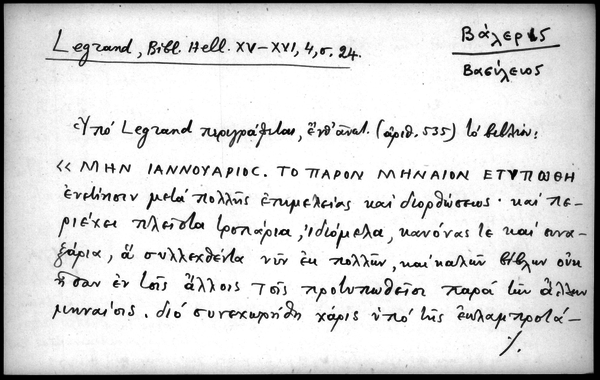 Legrand, Bibl. Hell. XV–XVI, 4, σ. 24.
Βάλερις
Βασίλειος
Ὑπό Legrand περιγράφεται, ἔνθ' ἀνωτ. (ἀριθ. 535) τό βιβλίον:
<< ΜΗΝ ΙΑΝΝΟΥΑΡΙΟC. ΤΟ ΠΑΡΟΝ ΜΗΝΑΙΟΝ ΕΤΥΠΩΘΗ
ἐνετίησιν μετά πολλῆς ἐπιμελείας καί διορθώσεως· καί πε-
ριέχει πλεῖστα τροπάρια, ἰδιόμελα, κανόνας τε καί συνα-
ξάρια, ἅ συλλεχθέντα νῦν ἐκ πολλῶν, καί καλῶν βίβλων οὐκ
ἦσαν ἐν τοῖς ἄλλοις τοῖς προτυπωθεῖσι παρά τῶν ἄλλων
μηναίοις. διό συνεχωρήθη χάρις ὑπό τῆς ἐκλαμπροτά–
./.